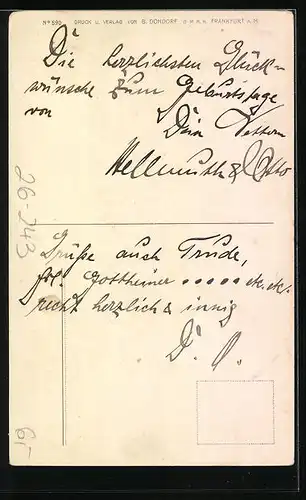 No 595 DRUCK U. VERLAG VON B. DONDORF G.M.B.H. FRANKFURT A/M
Die herzlichsten Glück-
wünsche zum Geburtstage
von Dein Vettern
Hellmuth & Otto
Grüße auch Trude,
frl. Gottheiner ..... etc. etc.
recht herzlich & innig
D. O.
26-243